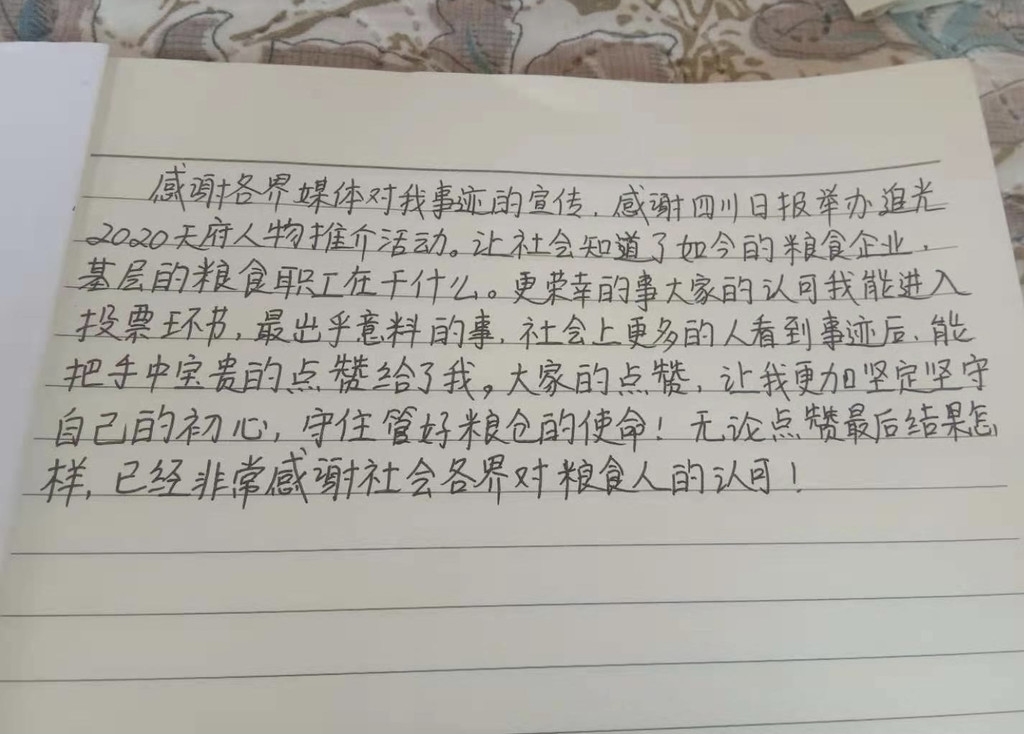 感谢各界媒体对我事迹的宣传，感谢四川日报举办追光
2020天府人物推介活动。让社会知道了如今的粮食企业，
基层的粮食职工在干什么。更荣幸的事大家的认可我能进入
投票环节，最出乎意料的事，社会上更多的人看到事迹后，能
把手中宝贵的点赞给了我。大家的点赞，让我更加坚定坚守
自己的初心，守住管好粮仓的使命！无论点赞最后结果怎
样，已经非常感谢社会各界对粮食人的认可！